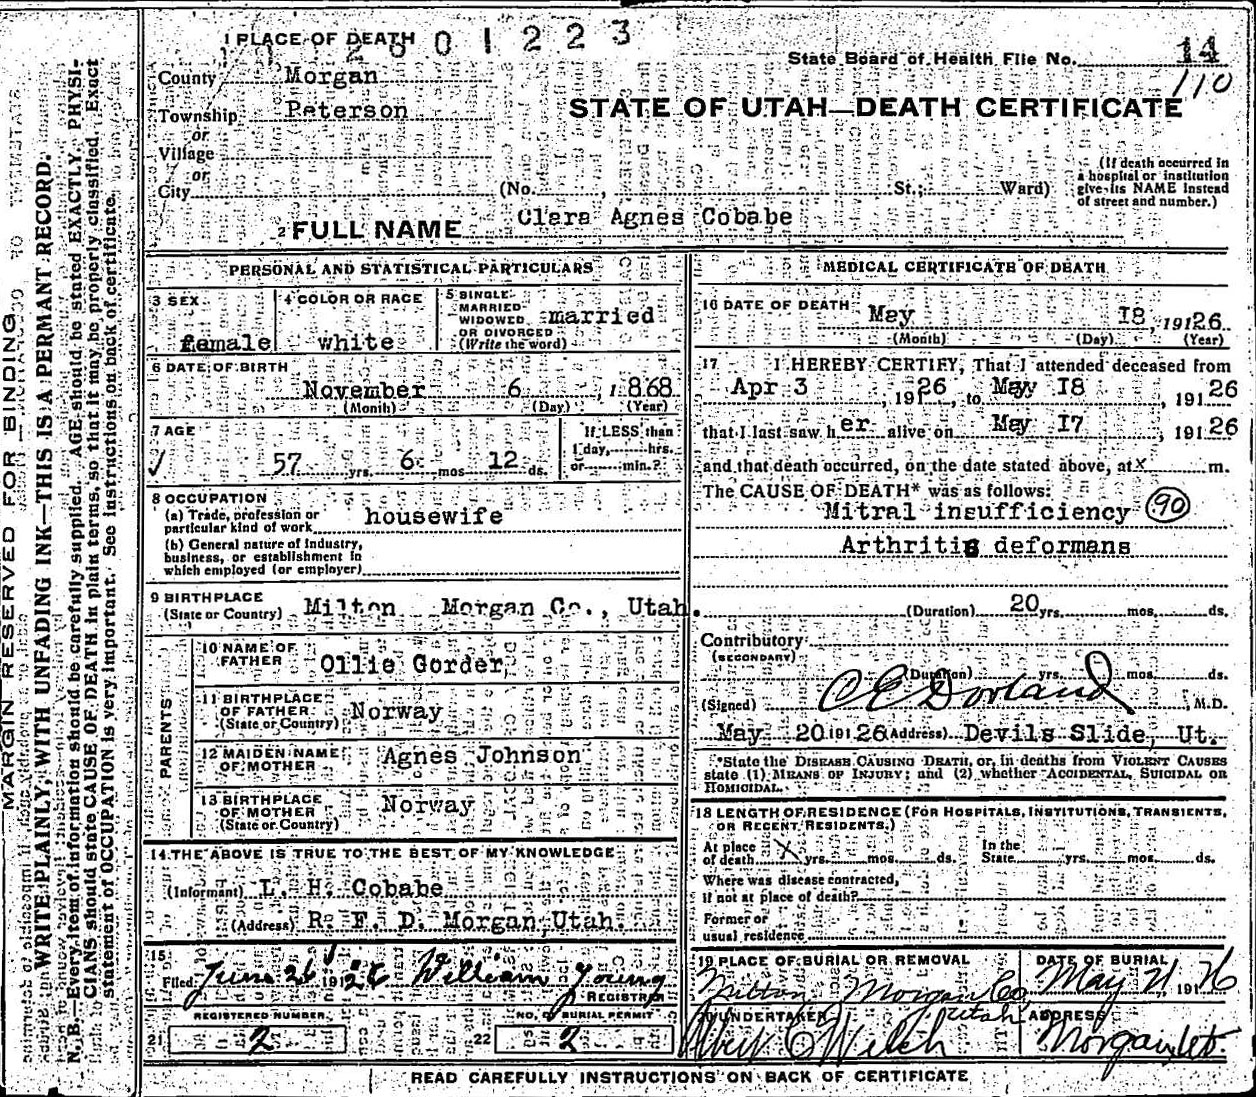 1 PLACE OF DEATH
2601223
State Board of Health File No. 14
110
County Morgan
STATE OF UTAH—DEATH CERTIFICATE
Township Peterson
or
Village
or
City
(No. , St.; Ward)
(If death occurred in
a hospital or institution
give its NAME instead
of street and number.)
2 FULL NAME Clara Agnes Cobabe
PERSONAL AND STATISTICAL PARTICULARS
3 SEX
female
4 COLOR OR RACE
white
5 SINGLE
MARRIED
WIDOWED
OR DIVORCED
(Write the word)
married
6 DATE OF BIRTH
November 6, 1868
(Month) (Day) (Year)
7 AGE
57 yrs. 6 mos 12 ds.
If LESS than
1 day, hrs.
or min.?
8 OCCUPATION
(a) Trade, profession or
particular kind of work housewife
(b) General nature of industry,
business, or establishment in
which employed (or employer)
9 BIRTHPLACE
(State or Country) Milton Morgan Co., Utah.
PARENTS
10 NAME OF
FATHER Ollie Gorder
11 BIRTHPLACE
OF FATHER
(State or Country) Norway
12 MAIDEN NAME
OF MOTHER Agnes Johnson
13 BIRTHPLACE
OF MOTHER
(State or Country) Norway
14 THE ABOVE IS TRUE TO THE BEST OF MY KNOWLEDGE
(Informant) L. H. Cobabe
(Address) R. F. D. Morgan, Utah.
15
Filed June 26 1926 William Young
REGISTRAR
REGISTERED NUMBER
21 2
NO. OF BURIAL PERMIT
22 2
MEDICAL CERTIFICATE OF DEATH
16 DATE OF DEATH
May 18, 19126
(Month) (Day) (Year)
17 I HEREBY CERTIFY, That I attended deceased from
Apr 3, 191 26, to May 18, 191 26
that I last saw her alive on May 17, 191 26
and that death occurred, on the date stated above, at x m.
The CAUSE OF DEATH* was as follows:
Mitral insufficiency 90
Arthritis deformans
(Duration) 20 yrs. mos. ds.
Contributory
(SECONDARY)
(Duration) yrs. mos. ds.
(Signed) C E Dorland, M.D.
May 20 191 26 (Address) Devils Slide, Ut.
*State the DISEASE CAUSING DEATH, or, in deaths from VIOLENT CAUSES
state (1) MEANS OF INJURY; and (2) whether ACCIDENTAL, SUICIDAL OR
HOMICIDAL.
18 LENGTH OF RESIDENCE (FOR HOSPITALS, INSTITUTIONS, TRANSIENTS,
OR RECENT RESIDENTS.)
At place
of death X yrs. mos. ds.
In the
State yrs. mos. ds.
Where was disease contracted,
if not at place of death?
Former or
usual residence
19 PLACE OF BURIAL OR REMOVAL
Milton Morgan Co,
Utah
DATE OF BURIAL
May 21, 1926
20 UNDERTAKER
Albert E Welch
ADDRESS
Morgan, Ut.
READ CAREFULLY INSTRUCTIONS ON BACK OF CERTIFICATE
MARGIN RESERVED FOR BINDING
WRITE PLAINLY, WITH UNFADING INK—THIS IS A PERMANT RECORD.
N. B.—Every item of information should be carefully supplied. AGE should be stated EXACTLY. PHYSI-
CIANS should state CAUSE OF DEATH in plain terms, so that it may be properly classified. Exact
statement of OCCUPATION is very important. See instructions on back of certificate.